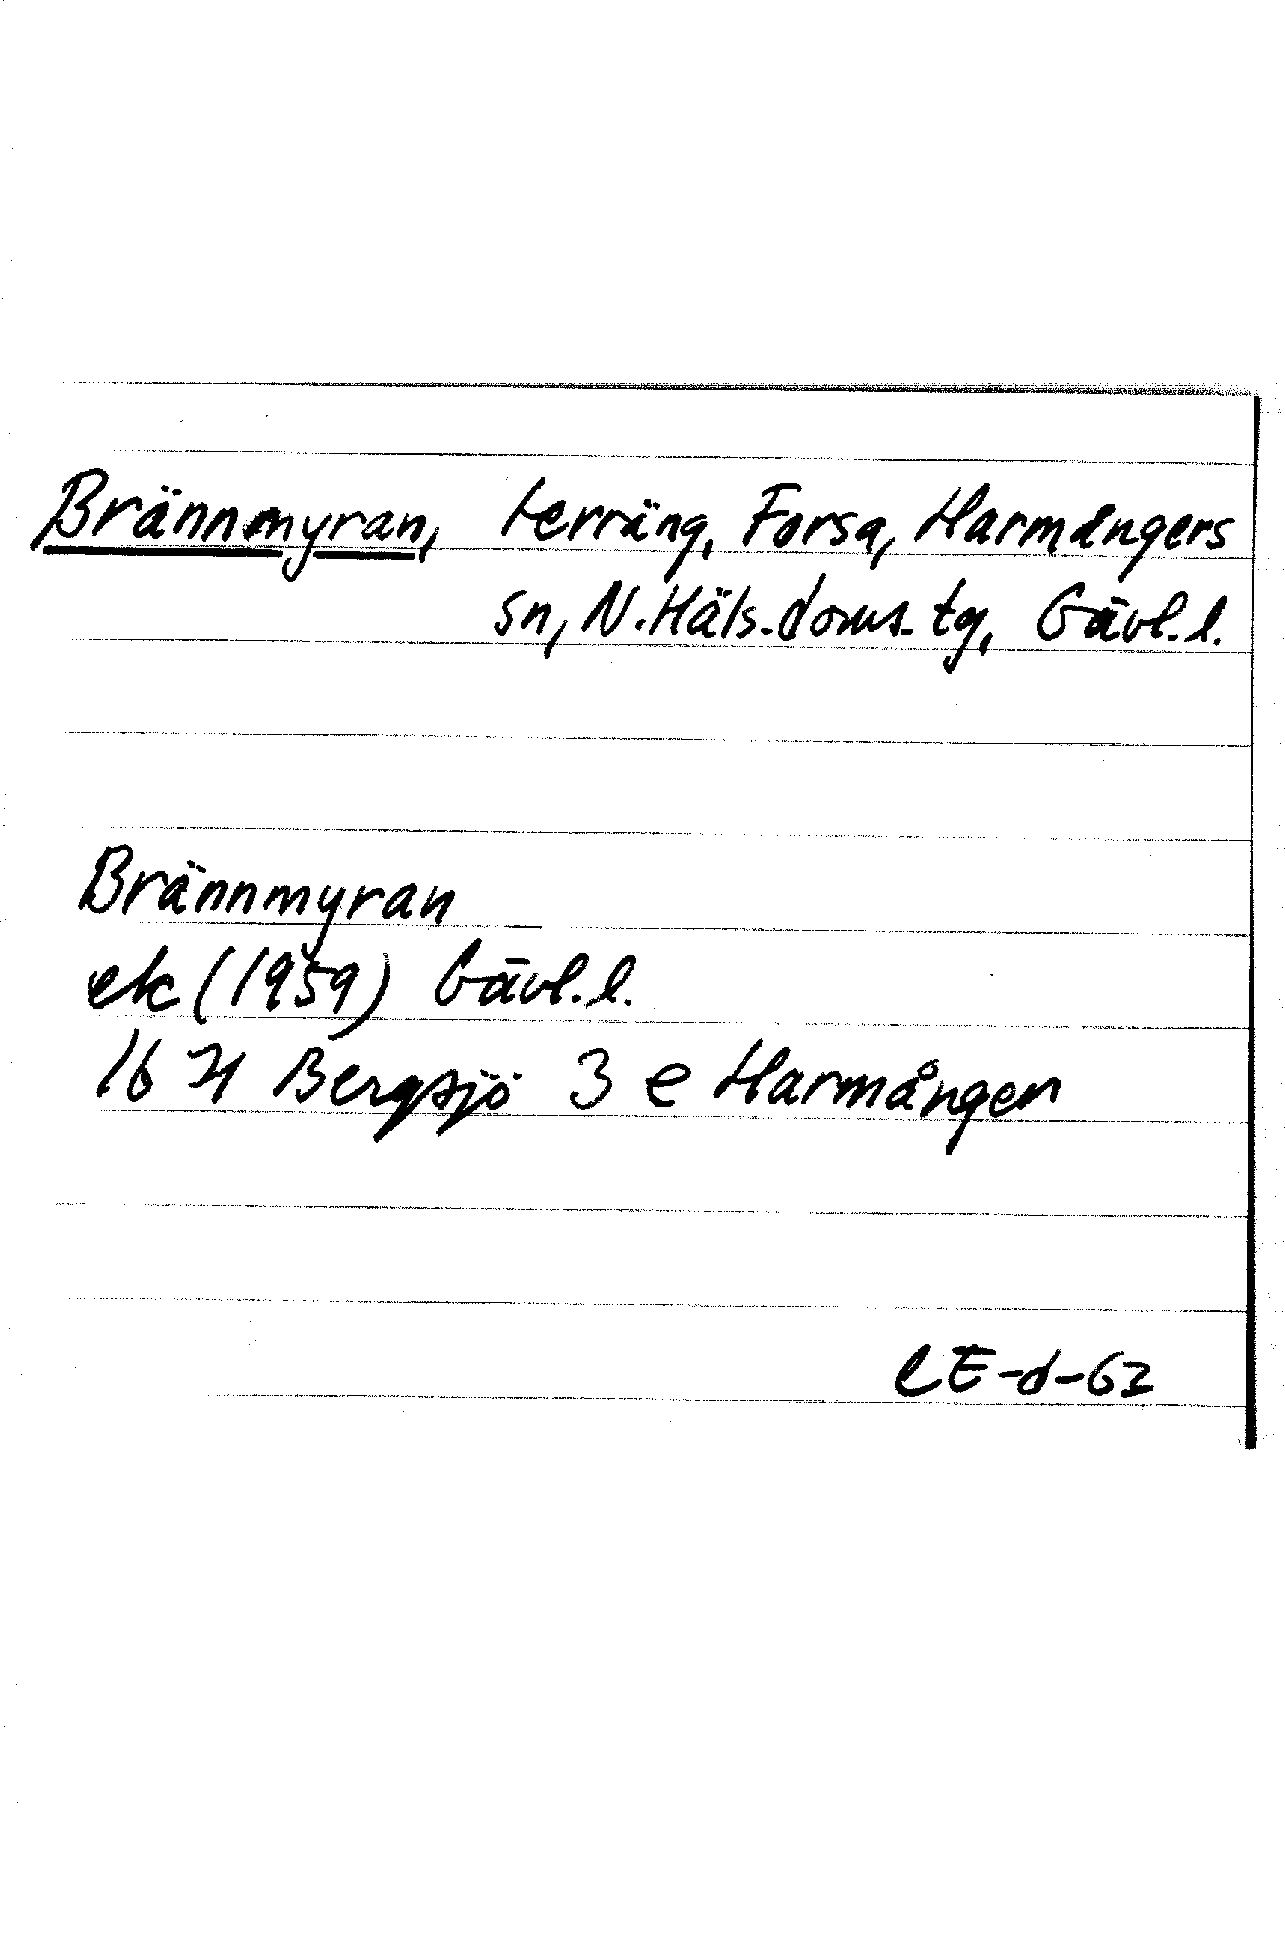 Brännmyran, terräng, Forsa, Harmångers
sn, N. Häls. doms. tg, Gävl. l.
Brännmyran
ek (1959) Gävl. l.
16 H Bergsjö 3 e Harmånger
CE-d-62